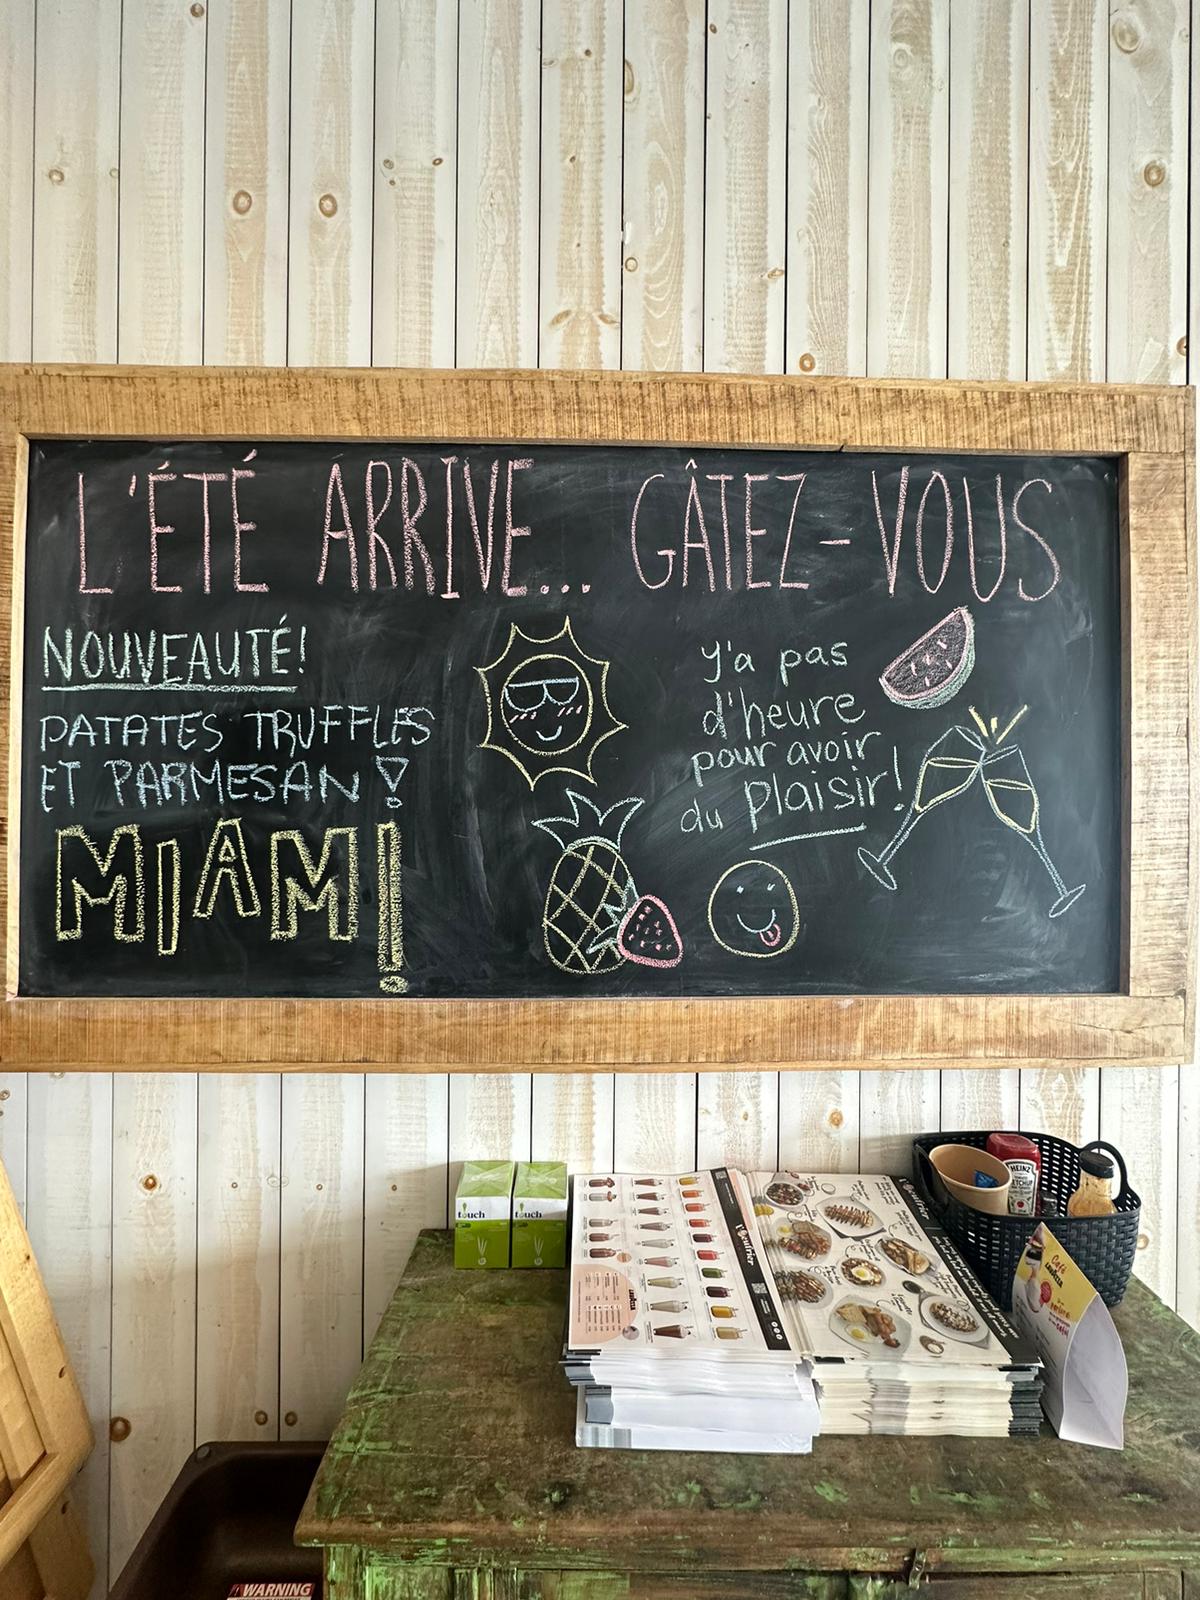 L'ÉTÉ ARRIVE... GÂTEZ-VOUS
NOUVEAUTÉ!
PATATES TRUFFLES
ET PARMESAN!
MIAM!
y'a pas
d'heure
pour avoir
du plaisir!
touch
touch
l'Oeufrier
l'Oeufrier
HEINZ
KETCHUP
Café
WARNING